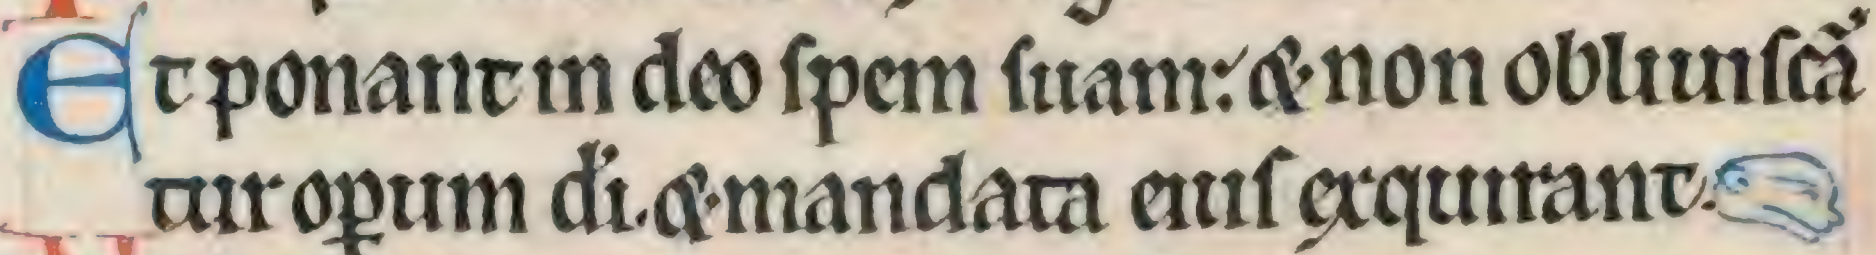 Et ponant in deo ſpem ſuam: & non obliuiſcã
tur oꝑum di. & mandata eiuſ exquirant.